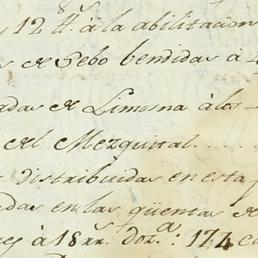 y 12 tt. á la abilitacion
s de Sebo bendidas á
adas de Limosna á los
s del Mezquital.....
distribuidas en esta
adas en las qüentas de
es á 18 rr.s doz.a: 174